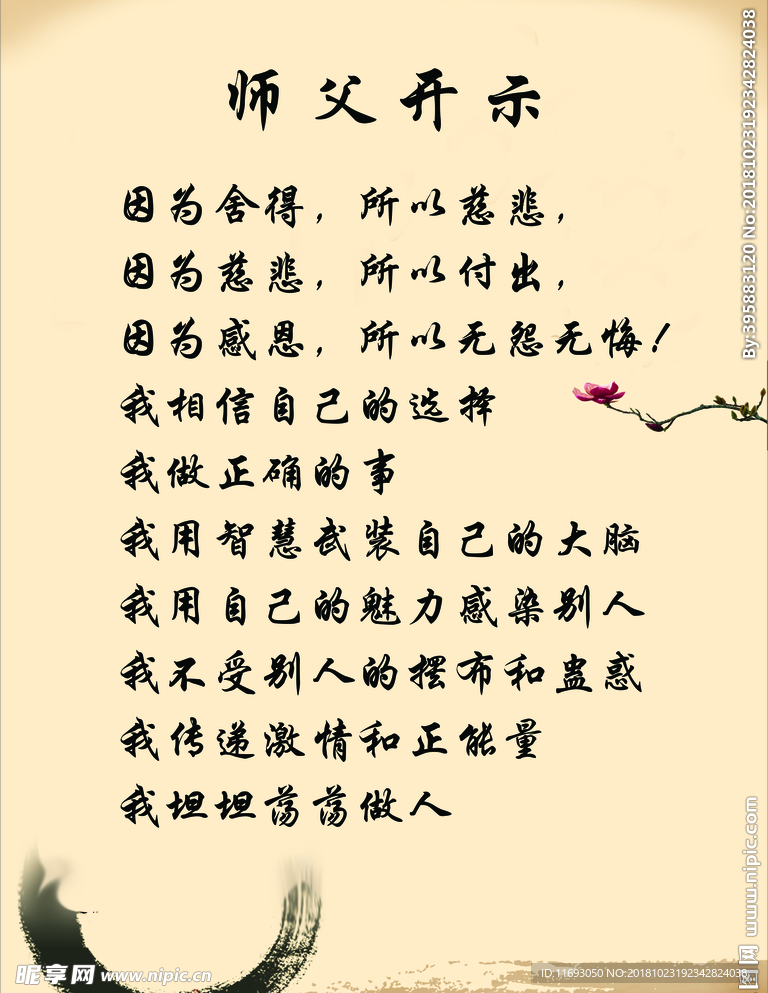 师父开示
因为舍得，所以慈悲，
因为慈悲，所以付出，
因为感恩，所以无怨无悔！
我相信自己的选择
我做正确的事
我用智慧武装自己的大脑
我用自己的魅力感染别人
我不受别人的摆布和蛊惑
我传递激情和正能量
我坦坦荡荡做人
By:395883120 No:20181023192342824038
www.nipic.com
昵图网
昵享网 www.nipic.cn
ID:11693050 NO:20181023192342824038